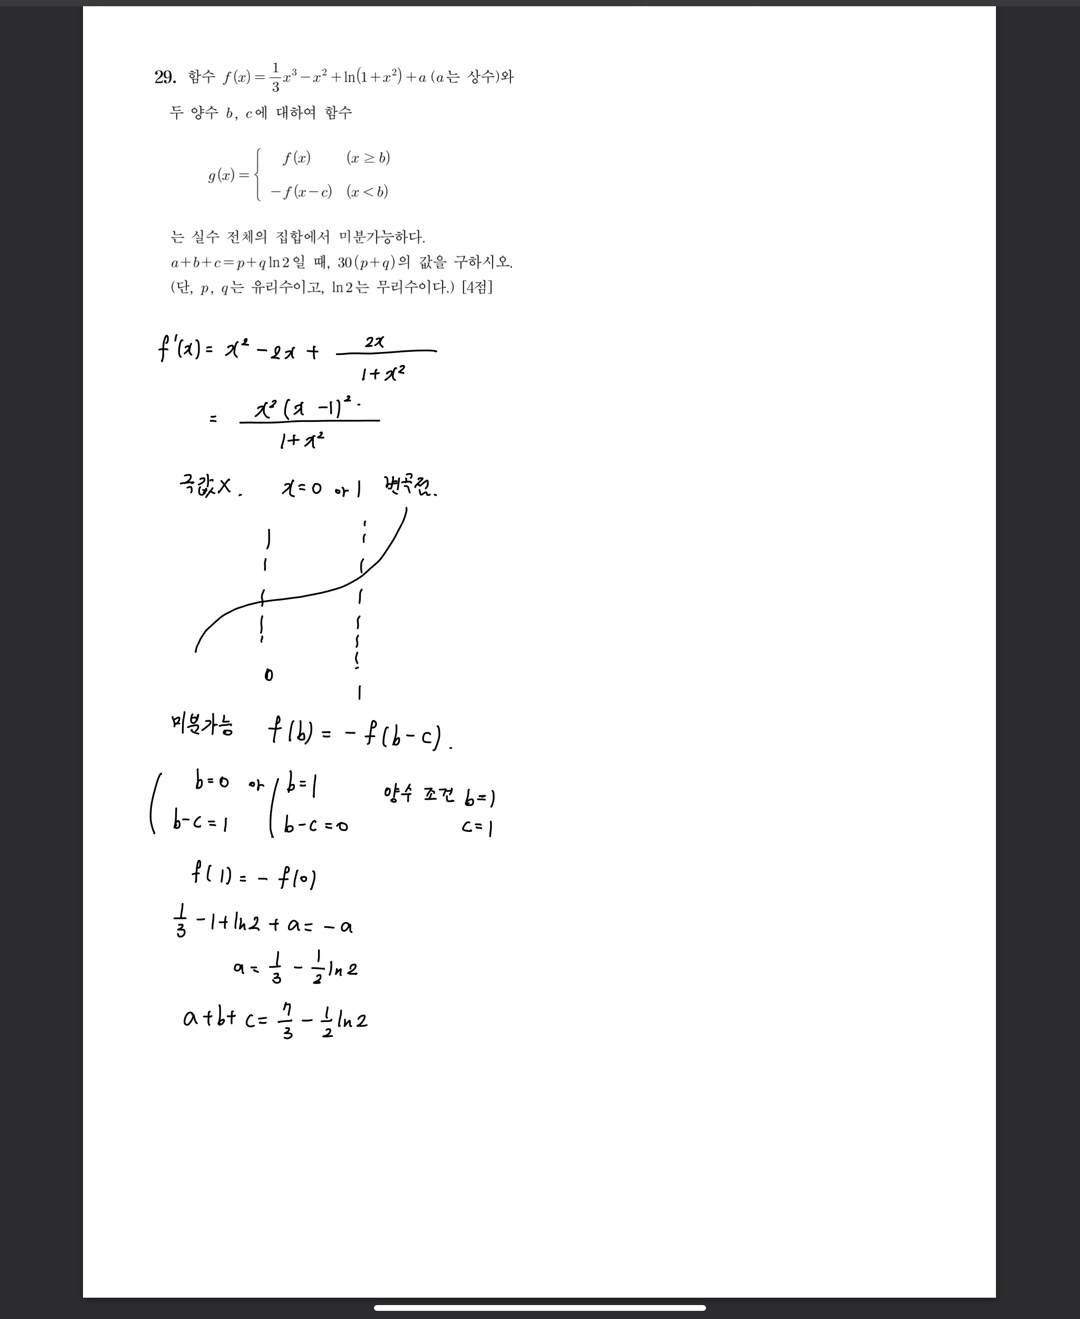 29. 함수 f(x)=1/3x³-x²+ln(1+x²)+a (a는 상수)와
두 양수 b, c에 대하여 함수
g(x)={ f(x) (x≥b)
-f(x-c) (x<b)
는 실수 전체의 집합에서 미분가능하다.
a+b+c=p+q ln2일 때, 30(p+q)의 값을 구하시오.
(단, p, q는 유리수이고, ln2는 무리수이다.) [4점]
f'(x)= x² -2x + 2x/(1+x²)
= x²(x-1)²/(1+x²)
극값X. x=0 or 1 변곡점.
0
1
미분가능 f(b) = -f(b-c).
b=0 or b=1 양수 조건 b=1
b-c=1 b-c=0 c=1
f(1) = -f(0)
1/3 -1+ln2 + a= -a
a= 1/3 - 1/2 ln2
a+b+c= 7/3 - 1/2 ln2